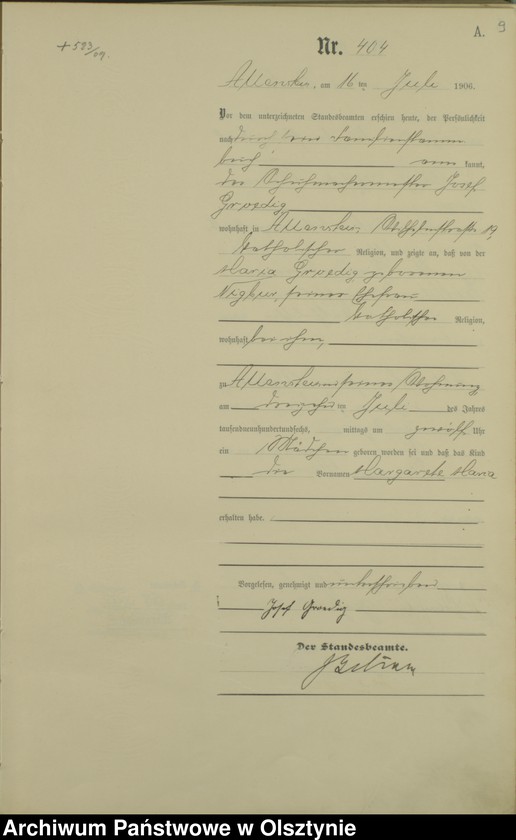 A. 9
+ 523/09.
Nr. 404
Allenstein, am 16 ten Juli 1906.
Vor dem unterzeichneten Standesbeamten erschien heute, der Persönlichkeit
nach durch sein Familienstamm
buch kannt,
der Schuhmachermeister Josef
Groedig
wohnhaft in Allenstein, 19,
katholischer Religion, und zeigte an, daß von der
Maria Groedig geborenen
seiner Ehefrau
katholischer Religion,
wohnhaft bei ihm,
zu Allenstein in seiner Wohnung
am dreizehn ten Juli des Jahres
tausendneunhundertundsechs, mittags um zwölf Uhr
ein Mädchen geboren worden sei und daß das Kind
die Vornamen Margarete Maria
erhalten habe.
Vorgelesen, genehmigt und unterschrieben
Josef Groedig
Der Standesbeamte.
Archiwum Państwowe w Olsztynie